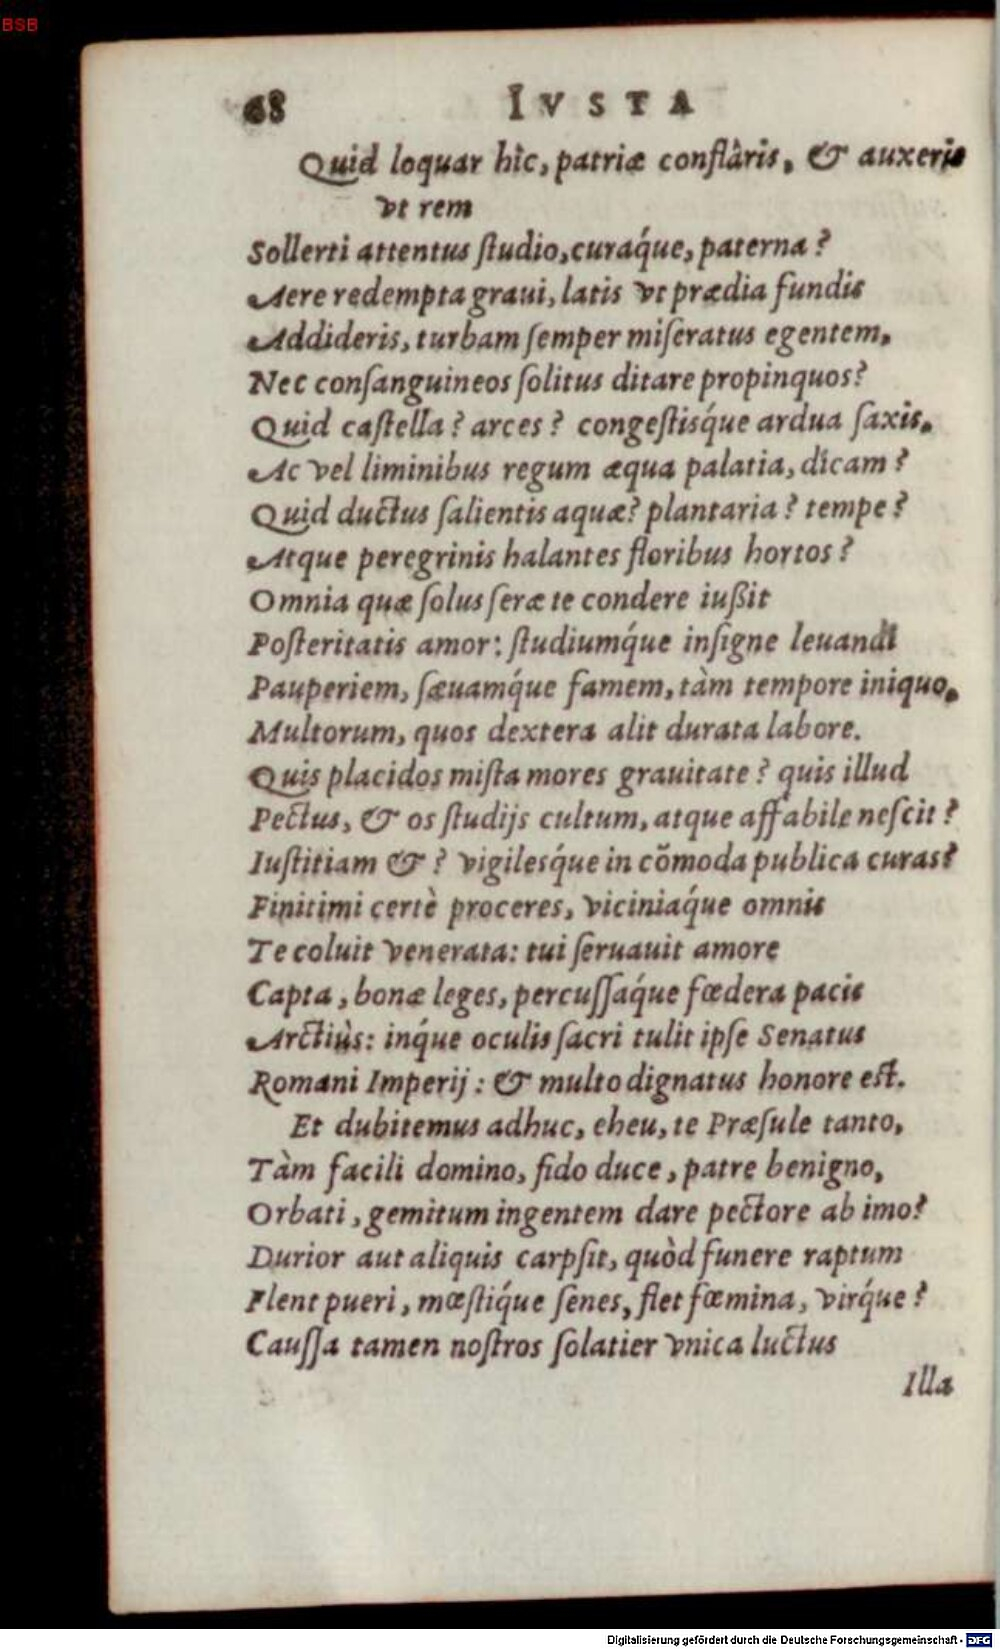 BSB
68 IVSTA
Quid loquar hîc, patriæ conflâris, & auxeris
vt rem
Sollerti attentus ſtudio, curaq́ue, paterna?
Aere redempta graui, latis vt prædia fundis
Addideris, turbam ſemper miſeratus egentem,
Nec conſanguineos ſolitus ditare propinquos?
Quid caſtella? arces? congeſtisq́ue ardua ſaxis,
Ac vel liminibus regum æqua palatia, dicam?
Quid ductus ſalientis aquæ? plantaria? tempe?
Atque peregrinis halantes floribus hortos?
Omnia quæ ſolus ſeræ te condere iußit
Poſteritatis amor: ſtudiumq́ue inſigne leuandi
Pauperiem, ſæuamq́ue famem, tàm tempore iniquo,
Multorum, quos dextera alit durata labore.
Quis placidos miſta mores grauitate? quis illud
Pectus, & os ſtudijs cultum, atque affabile neſcit?
Iuſtitiam &? vigilesq́ue in cõmoda publica curas?
Finitimi certè proceres, viciniaq́ue omnis
Te coluit venerata: tui ſeruauit amore
Capta, bonæ leges, percuſſaq́ue fœdera pacis
Arctiùs: inq́ue oculis ſacri tulit ipſe Senatus
Romani Imperij: & multo dignatus honore eſt.
Et dubitemus adhuc, eheu, te Præſule tanto,
Tàm facili domino, fido duce, patre benigno,
Orbati, gemitum ingentem dare pectore ab imo?
Durior aut aliquis carpſit, quòd funere raptum
Flent pueri, mœſtiq́ue ſenes, flet fœmina, virq́ue?
Cauſſa tamen noſtros ſolatier vnica luctus
Illa
Digitalisierung gefördert durch die Deutsche Forschungsgemeinschaft - DFG